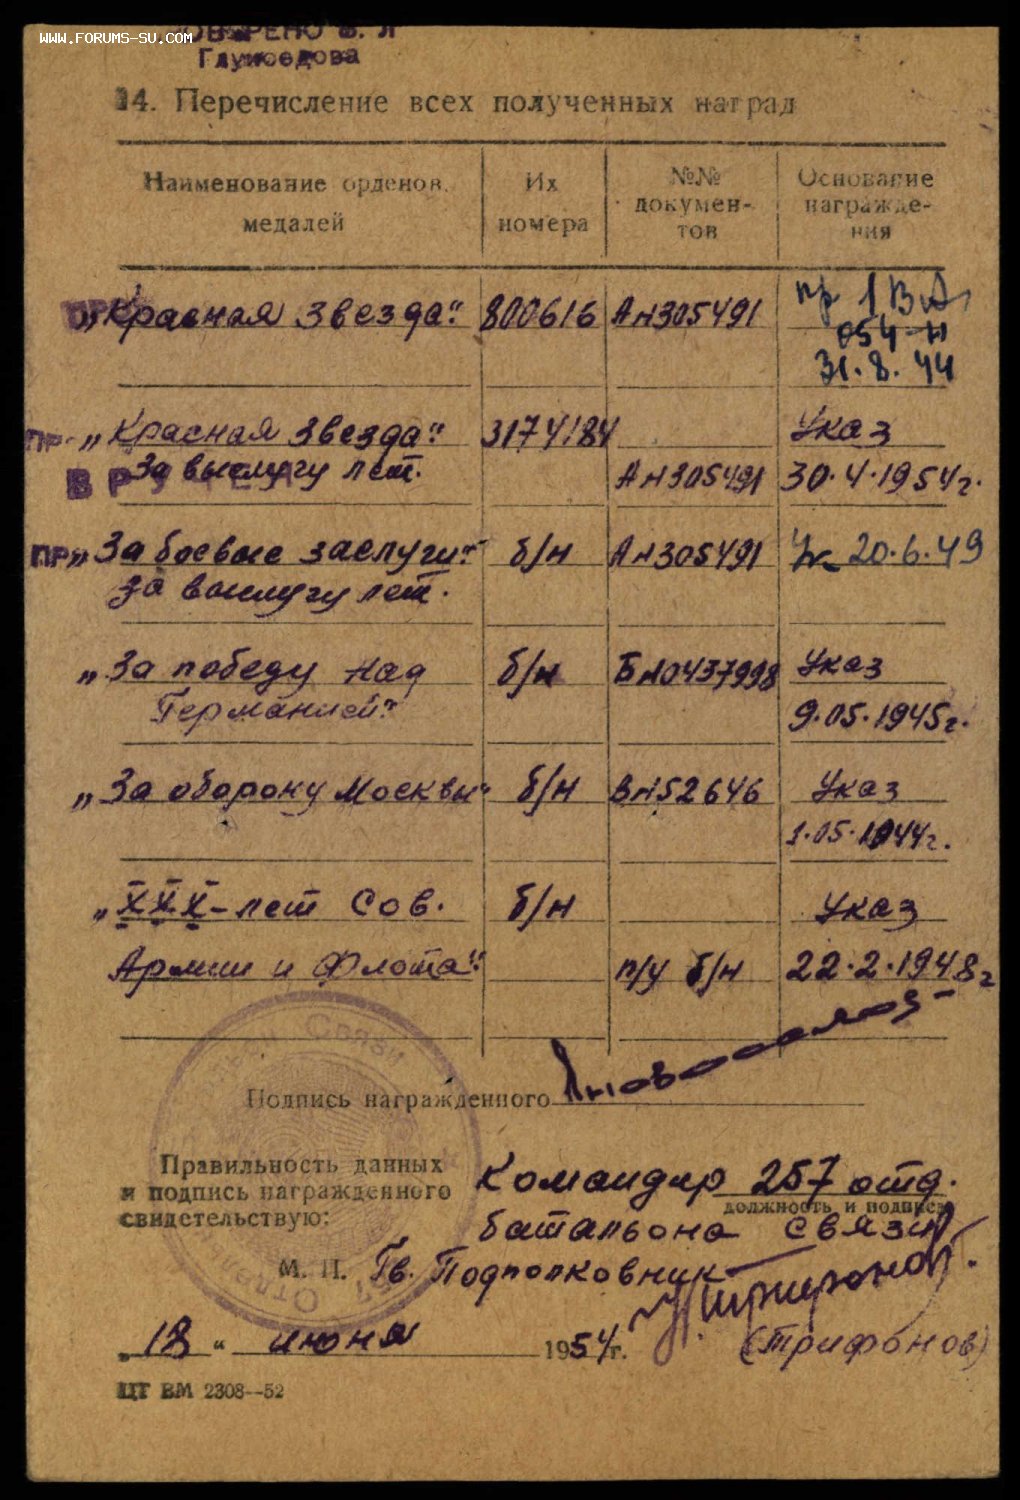 WWW.FORUMS-SU.COM
Глуховедова
14. Перечисление всех полученных наград
Наименование орденов, медалей
Их номера
№№ докумен-
тов
Основание
награжде-
ния
„Красная звезда“ 800616 Ан305491 пр 1 ВА
054-н
31.8.44
ПР „Красная звезда“ 3174184 Указ
за выслугу лет. Ан305491 30.4.1954г.
ПР „За боевые заслуги“ б/н Ан305491 Ук 20.6.49
за выслугу лет.
„За победу над б/н Бн0437998 Указ
Германией“ 9.05.1945г.
„За оборону Москвы“ б/н Вн52646 Указ
1.05.1944г.
„XXX-лет Сов. б/н Указ
Армии и Флота“ п/у б/н 22.2.1948г
Подпись награжденного
Правильность данных
и подпись награжденного
свидетельствую:
Командир 257 отд.
должность и подпись
батальона связи
М. П. Гв. Подполковник
(Трифонов)
„18“ июня 1954г.
ЦТ ВМ 2308—52